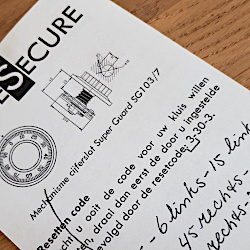 SECURE
Mechanisme cijferslot Super Guard SG103/7
Resetten code
cht u ooit de code voor uw kluis willen
en, draai dan eerst de door u ingestelde
evolgd door de resetcode: 330-3.
6 links - 15 link
45 rechts -
rechts